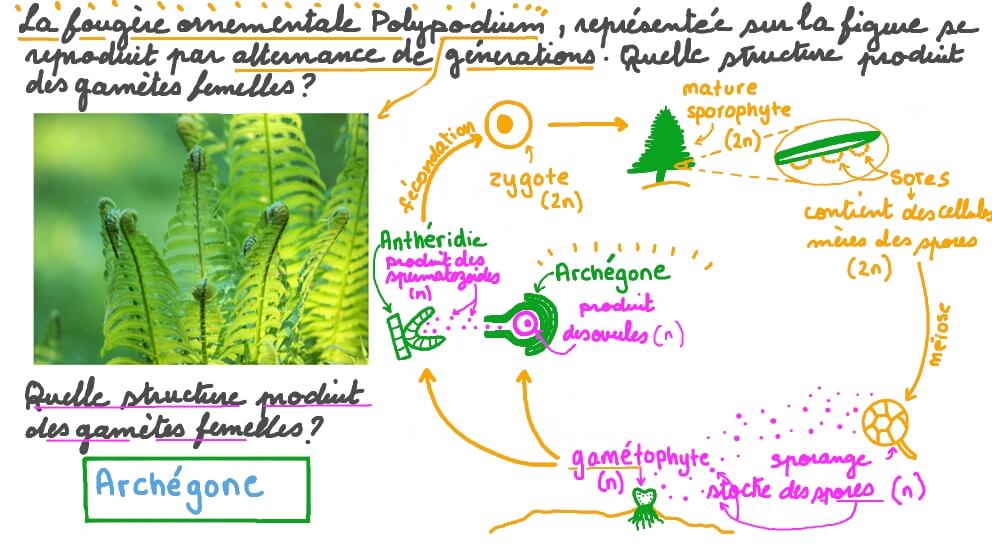 La fougère ornementale Polypodium, représentée sur la figure se
reproduit par alternance de générations. Quelle structure produit
des gamètes femelles ?
mature
sporophyte
(2n)
fécondation
zygote
(2n)
sores
contient des cellules
mères des spores
(2n)
Anthéridie
produit des
spermatozoïdes
(n)
Archégone
produit
des ovules (n)
méiose
Quelle structure produit
des gamètes femelles ?
Archégone
gamétophyte
(n)
sporange
stocke des spores (n)